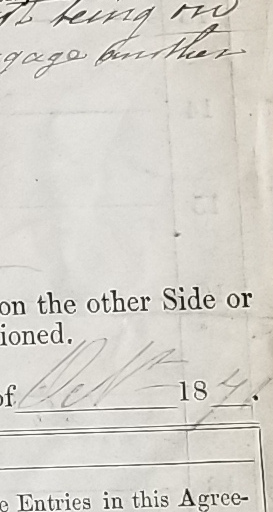 being on
gage another
on the other Side or
ioned.
of Oct 187.
e Entries in this Agree-